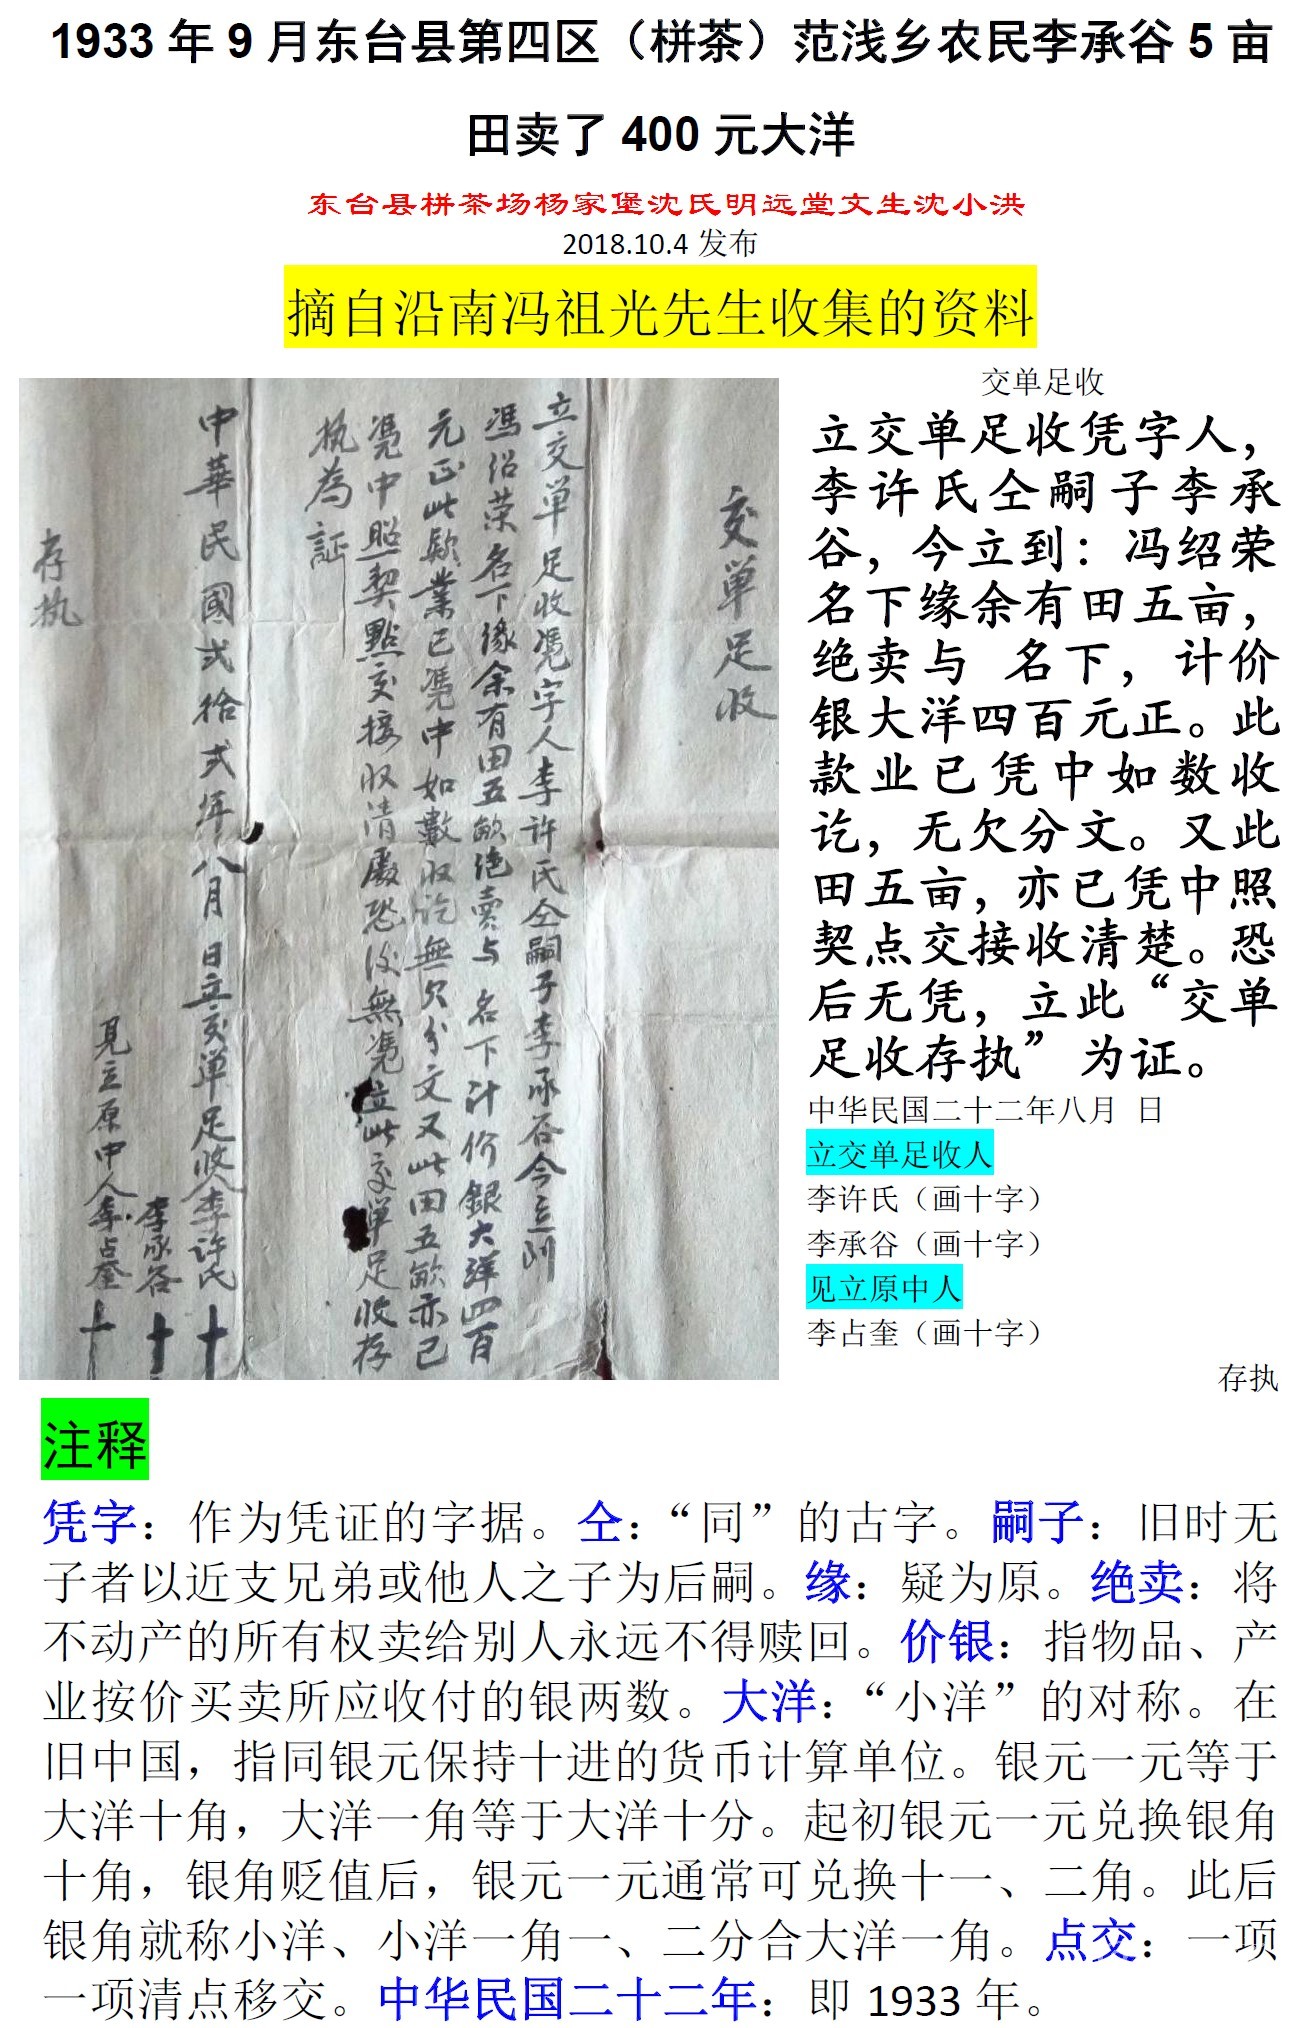 1933 年 9 月东台县第四区（栟茶）范浅乡农民李承谷 5 亩
田卖了 400 元大洋
东台县栟茶场杨家堡沈氏明远堂文生沈小洪
2018.10.4 发布
摘自沿南冯祖光先生收集的资料
交单足收
立交单足收憑字人李许氏仝嗣子李承谷今立到
馮绍荣名下缘余有田五畝绝賣与 名下计价銀大洋四百
元正此款業已憑中如數收讫無欠分文又此田五畝亦已
憑中照契點交接收清處恐後無憑立此交单足收存
执為証
中華民國弍拾弍年八月 日立交单足收人李许氏 十
李承谷 十
見立原中人李占奎 十
存执
交单足收
立交单足收凭字人，
李许氏仝嗣子李承
谷，今立到：冯绍荣
名下缘余有田五亩，
绝卖与 名下，计价
银大洋四百元正。此
款业已凭中如数收
讫，无欠分文。又此
田五亩，亦已凭中照
契点交接收清楚。恐
后无凭，立此“交单
足收存执”为证。
中华民国二十二年八月 日
立交单足收人
李许氏（画十字）
李承谷（画十字）
见立原中人
李占奎（画十字）
存执
注释
凭字：作为凭证的字据。仝：“同”的古字。嗣子：旧时无
子者以近支兄弟或他人之子为后嗣。缘：疑为原。绝卖：将
不动产的所有权卖给别人永远不得赎回。价银：指物品、产
业按价买卖所应收付的银两数。大洋：“小洋”的对称。在
旧中国，指同银元保持十进的货币计算单位。银元一元等于
大洋十角，大洋一角等于大洋十分。起初银元一元兑换银角
十角，银角贬值后，银元一元通常可兑换十一、二角。此后
银角就称小洋、小洋一角一、二分合大洋一角。点交：一项
一项清点移交。中华民国二十二年：即 1933 年。